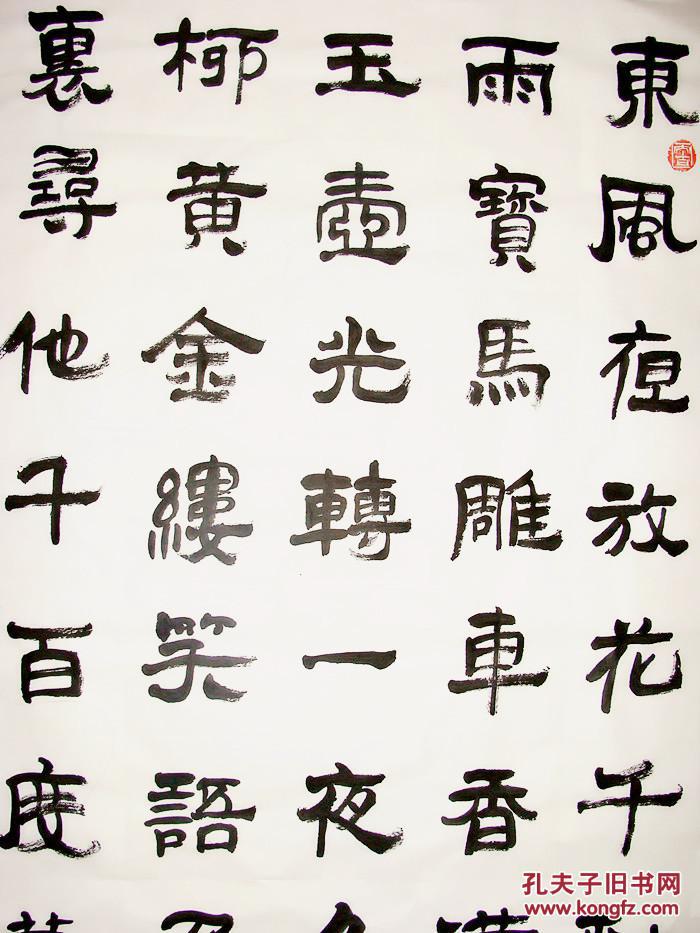 東風夜放花千
雨寶馬雕車香
玉壺光轉一夜
柳黄金縷笑語
裏尋他千百度
孔夫子旧书网
www.kongfz.com